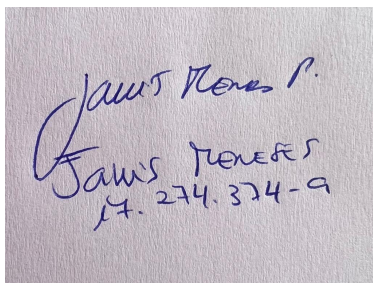 Janis Meneses P.
Janis MENESES
17.274.374-9